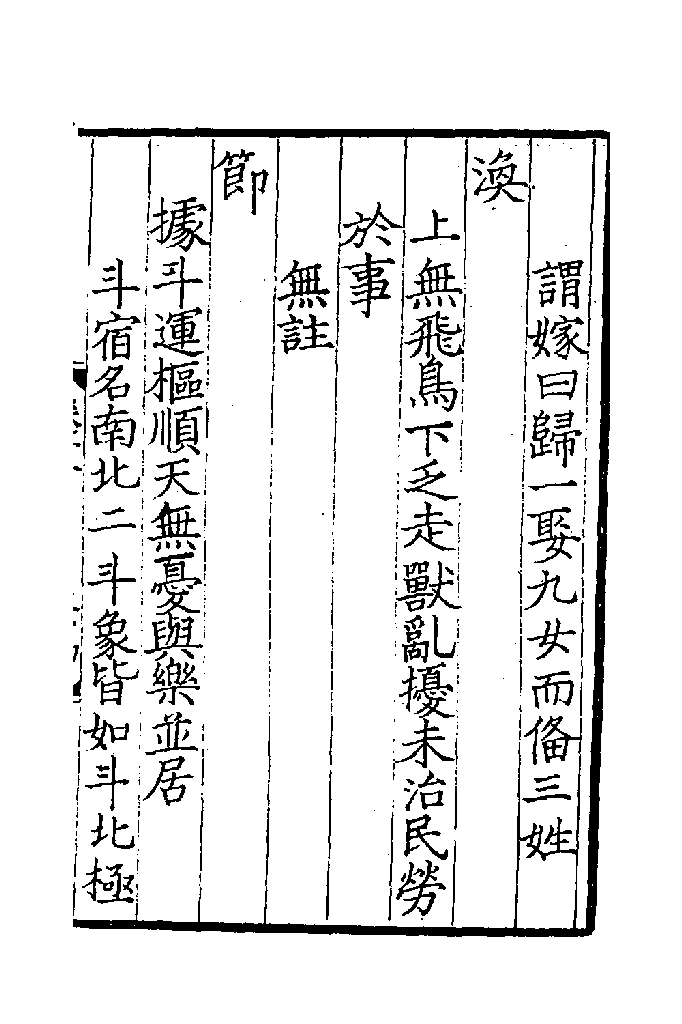 謂嫁曰歸一娶九女而俻三姓
渙
上無飛鳥下乏走獸亂擾未治民勞
於事
無註
節
據斗運樞順天無憂與樂並居
斗宿名南北二斗象皆如斗北極